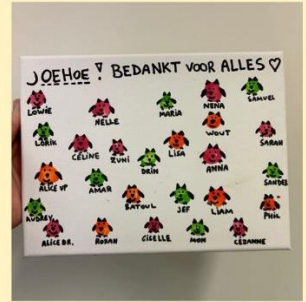 JOEHOE! BEDANKT VOOR ALLES ♡
LOWIE NELLE MARIA NENA SAMUEL
LORIK CÉLINE ZUNI DRIN LISA WOUT SARAH
ALICE VP AMAR ANNA SANDER
AUDREY BATOUL JEF LIAM PHIL
ALICE DR. ROSAN GISELLE MON CÉZANNE